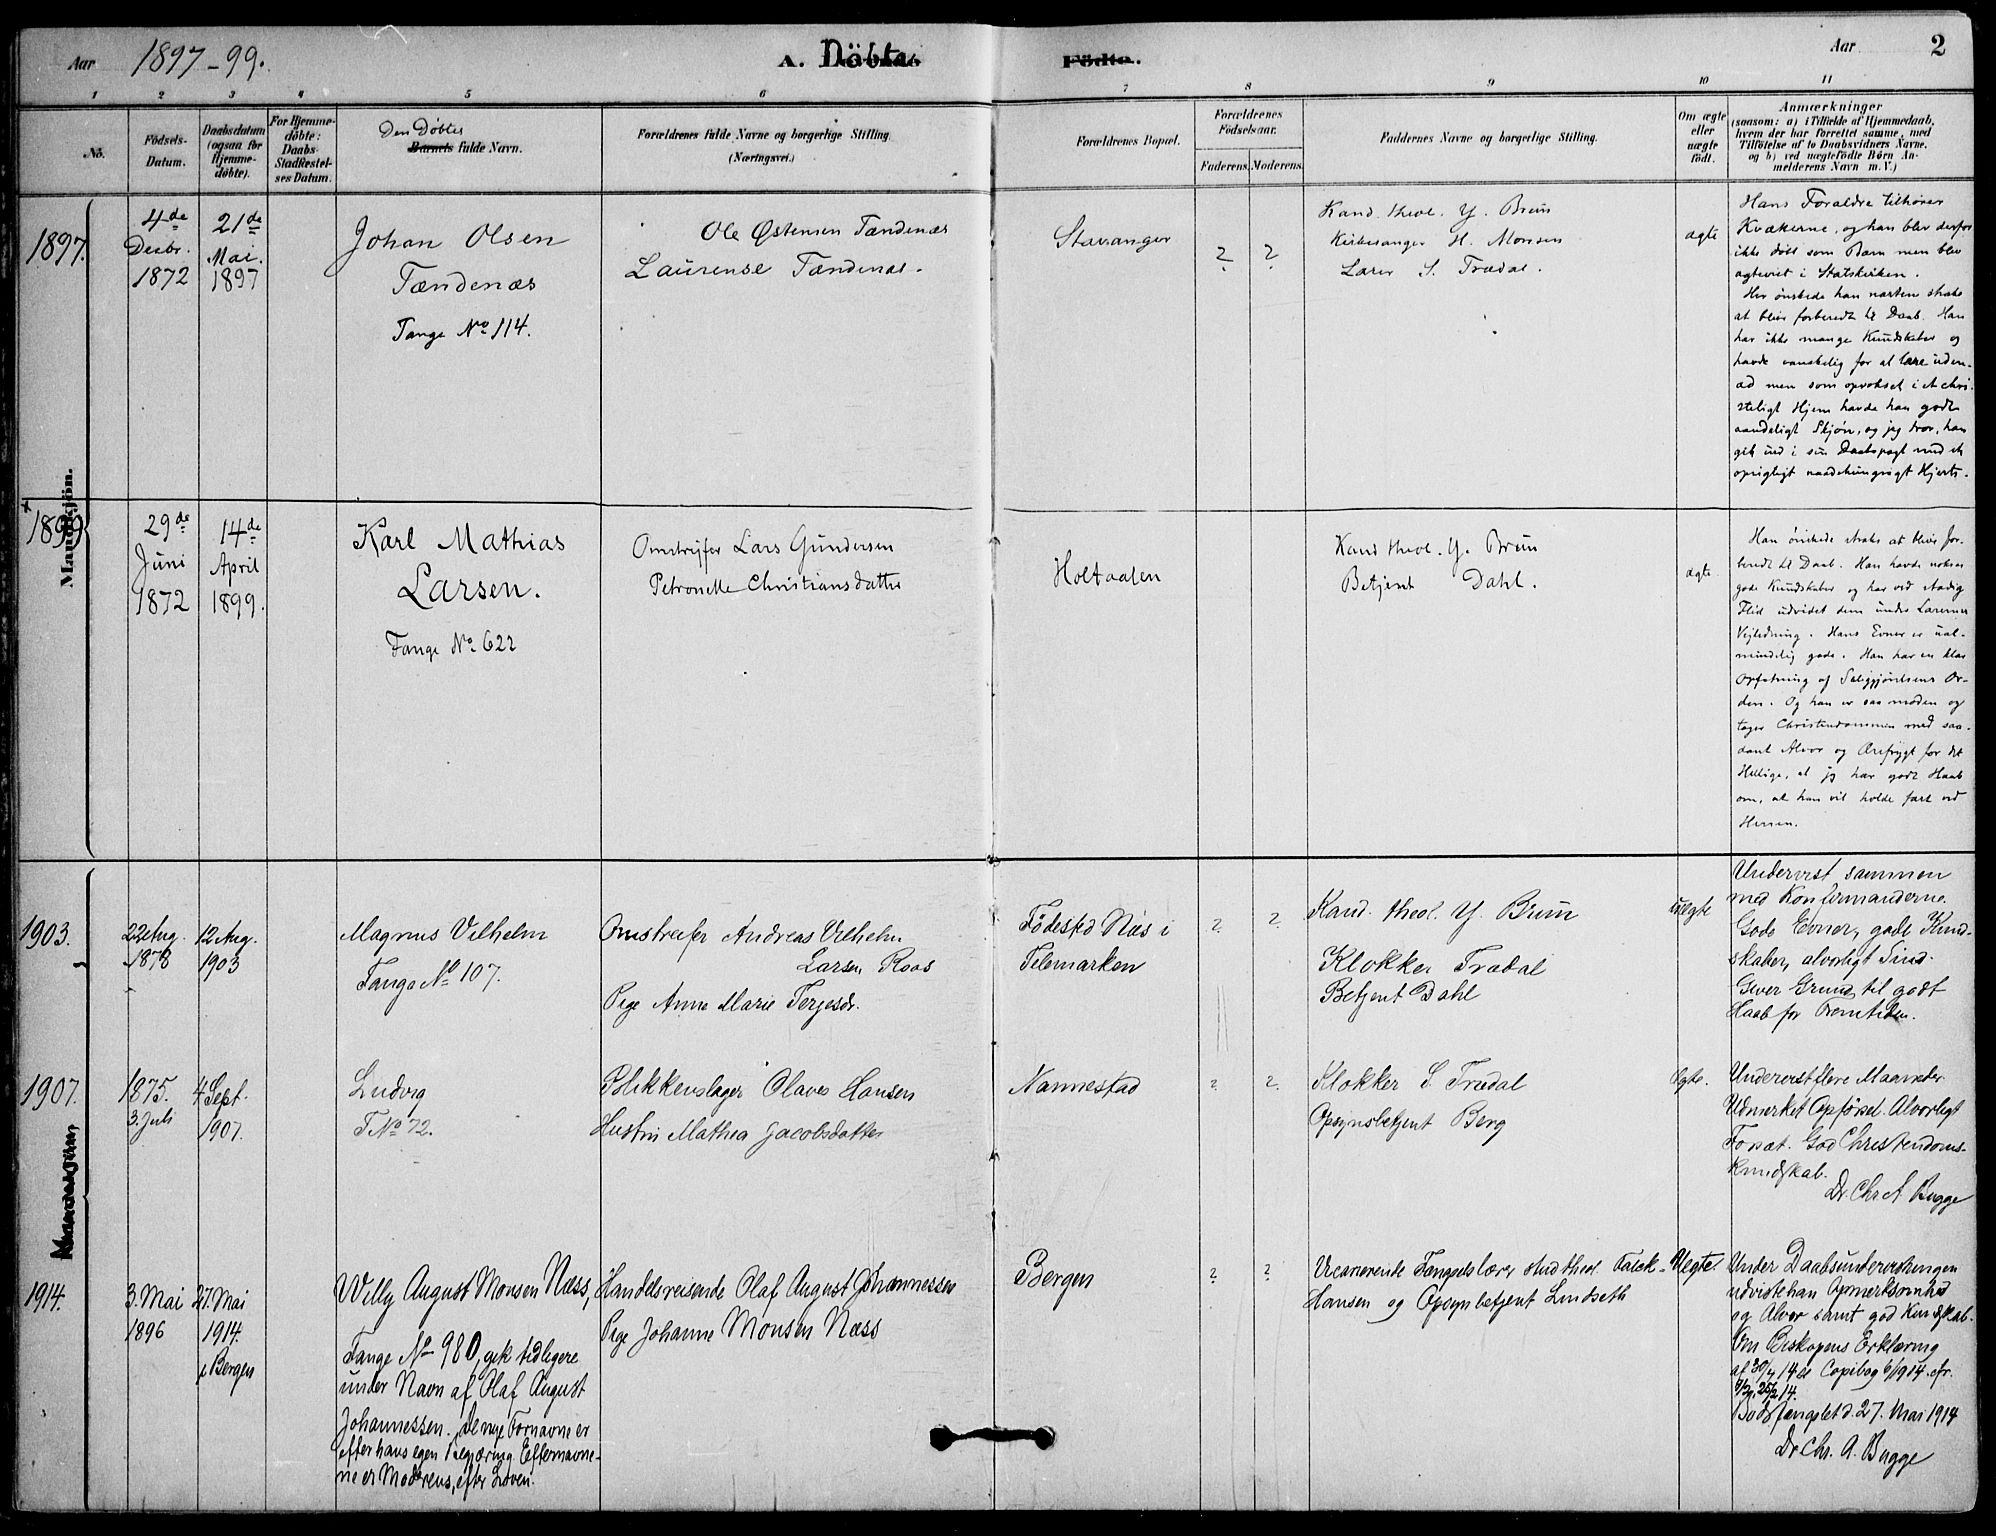 Aar 1897-99.
A. Döbte.
Födte.
Aar
2
1 2 3 4 5 6 7 8 9 10 11
No.
Födsels-
Datum.
Daabsdatum
(ogsaa for
Hjemme-
döbte).
For Hjemme-
döbte:
Daabs-
Stadfæstel-
ses Datum.
Den Døbtes
Barnets fulde Navn.
Forældrenes fulde Navne og borgerlige Stilling.
(Næringsvei.)
Forældrenes Bopæl.
Forældrenes
Födselsaar.
Faderens. Moderens.
Faddernes Navne og borgerlige Stilling.
Om ægte
eller
uægte
född.
Anmærkninger
(saasom: a) i Tilfælde af Hjemmedaab,
hvem der har forrettet samme, med
Tilföielse af to Daabsvidners Navne.
og b) ved uægtefödte Börn An-
melderens Navn m. V.)
Mandkjön.
1897.
4de
Decbr.
1872
21de
Mai.
1897
Johan Olsen
Tændenæs
Fange No 114.
Ole Østensen Tændenæs
Laurense Tændenæs.
Stavanger
? ?
Kand. theol. Y. Brun
Kirkesanger H. Monsen
Lærer S. Trædal.
ægte
Hans Forældre tilhører
Kvækerne, og han blev derfor
ikke døbt som Barn men blev
agteviet i Statskirken.
Her ønskede han næsten straks
at blive forberedt til Daab. Han
har ikke mange Kundskaber og
havde vanskelig for at lære uden-
ad men som opvokset i et chri-
steligt Hjem havde han godt
aandeligt Skjøn, og jeg tror, han
gik ind i sin Daabspagt med et
oprigtigt naadehungrigt Hjerte.
1899
29de
Juni
1872
14de
April
1899.
Karl Mathias
Larsen.
Fange No 622
Omstrejfer Lars Gundersen
Petronelle Christiansdatter
Holtaalen
Kand theol. Y. Brun
Betjent Dahl.
ægte
Han ønskede straks at blive for-
beredt til Daab. Han havde nokså
gode Kundskaber og har ved stadig
Flid udvidet dem under Lærernes
Vejledning. Hans Evner er ual-
mindelig gode. Han har en klar
Opfatning af Saliggjørelsens Or-
den. Og han er saa moden og
tager Christendommen med saa-
dant Alvor og Ærefrygt for det
Hellige, at jeg har godt Haab
om, at han vil holde fast ved
Herren.
1903.
22 Aug.
1878
12 Aug.
1903
Magnus Vilhelm
Fange No 107.
Omstreifer Andreas Vilhelm
Larsen Roos
Pige Anne Marie Terjesdr.
Fødested Næs i
Telemarken
? ?
Kand. theol. Y. Brun
Klokker Trædal
Betjent Dahl
uægte
Undervist sammen
med Konfirmanderne.
Gode Evner, gode Kund-
skaber, alvorligt Sind.
Giver Grund til godt
Haab for Fremtiden.
1907.
1875.
3. Juli
4 Sept.
1907.
Ludvig
F No 72.
Blikkenslager Olaves Hansen
Hustru Mathea Jacobsdatter
Nannestad
? ?
Klokker S. Trædal
Opsynsbetjent Berg
Ægte.
Undervist flere Maaneder
Udmerket Opførsel. Alvorligt
Forsæt. God Christendoms-
kundskab.
Dr. Chr A Bugge
1914.
3. Mai
1896
27. Mai
1914.
i Bergen
Willy August Monsen Næss,
Fange No 980, gik tidligere
under Navn af Olaf August
Johannessen. De nye Fornavne er
efter hans egen Begjæring Efternavne-
ne er Moderens, efter Loven.
Handelsreisende Olaf August Johannessen
Pige Johanne Monsen Næss
Bergen
? ?
Vicarierende Fængselslærer stud theol Falck-
Hansen og Opsynbetjent Lindseth
Uægte.
Under Daabsundervisningen
udviste han Opmerksomhed
og Alvor samt god Kundskab.
Om Biskopens Erklæring
af 30/4 14 se Copibog 6/1914. cfr.
25/2 14.
Bodsfængslet d. 27. Mai 1914
Dr. Chr. A. Bugge